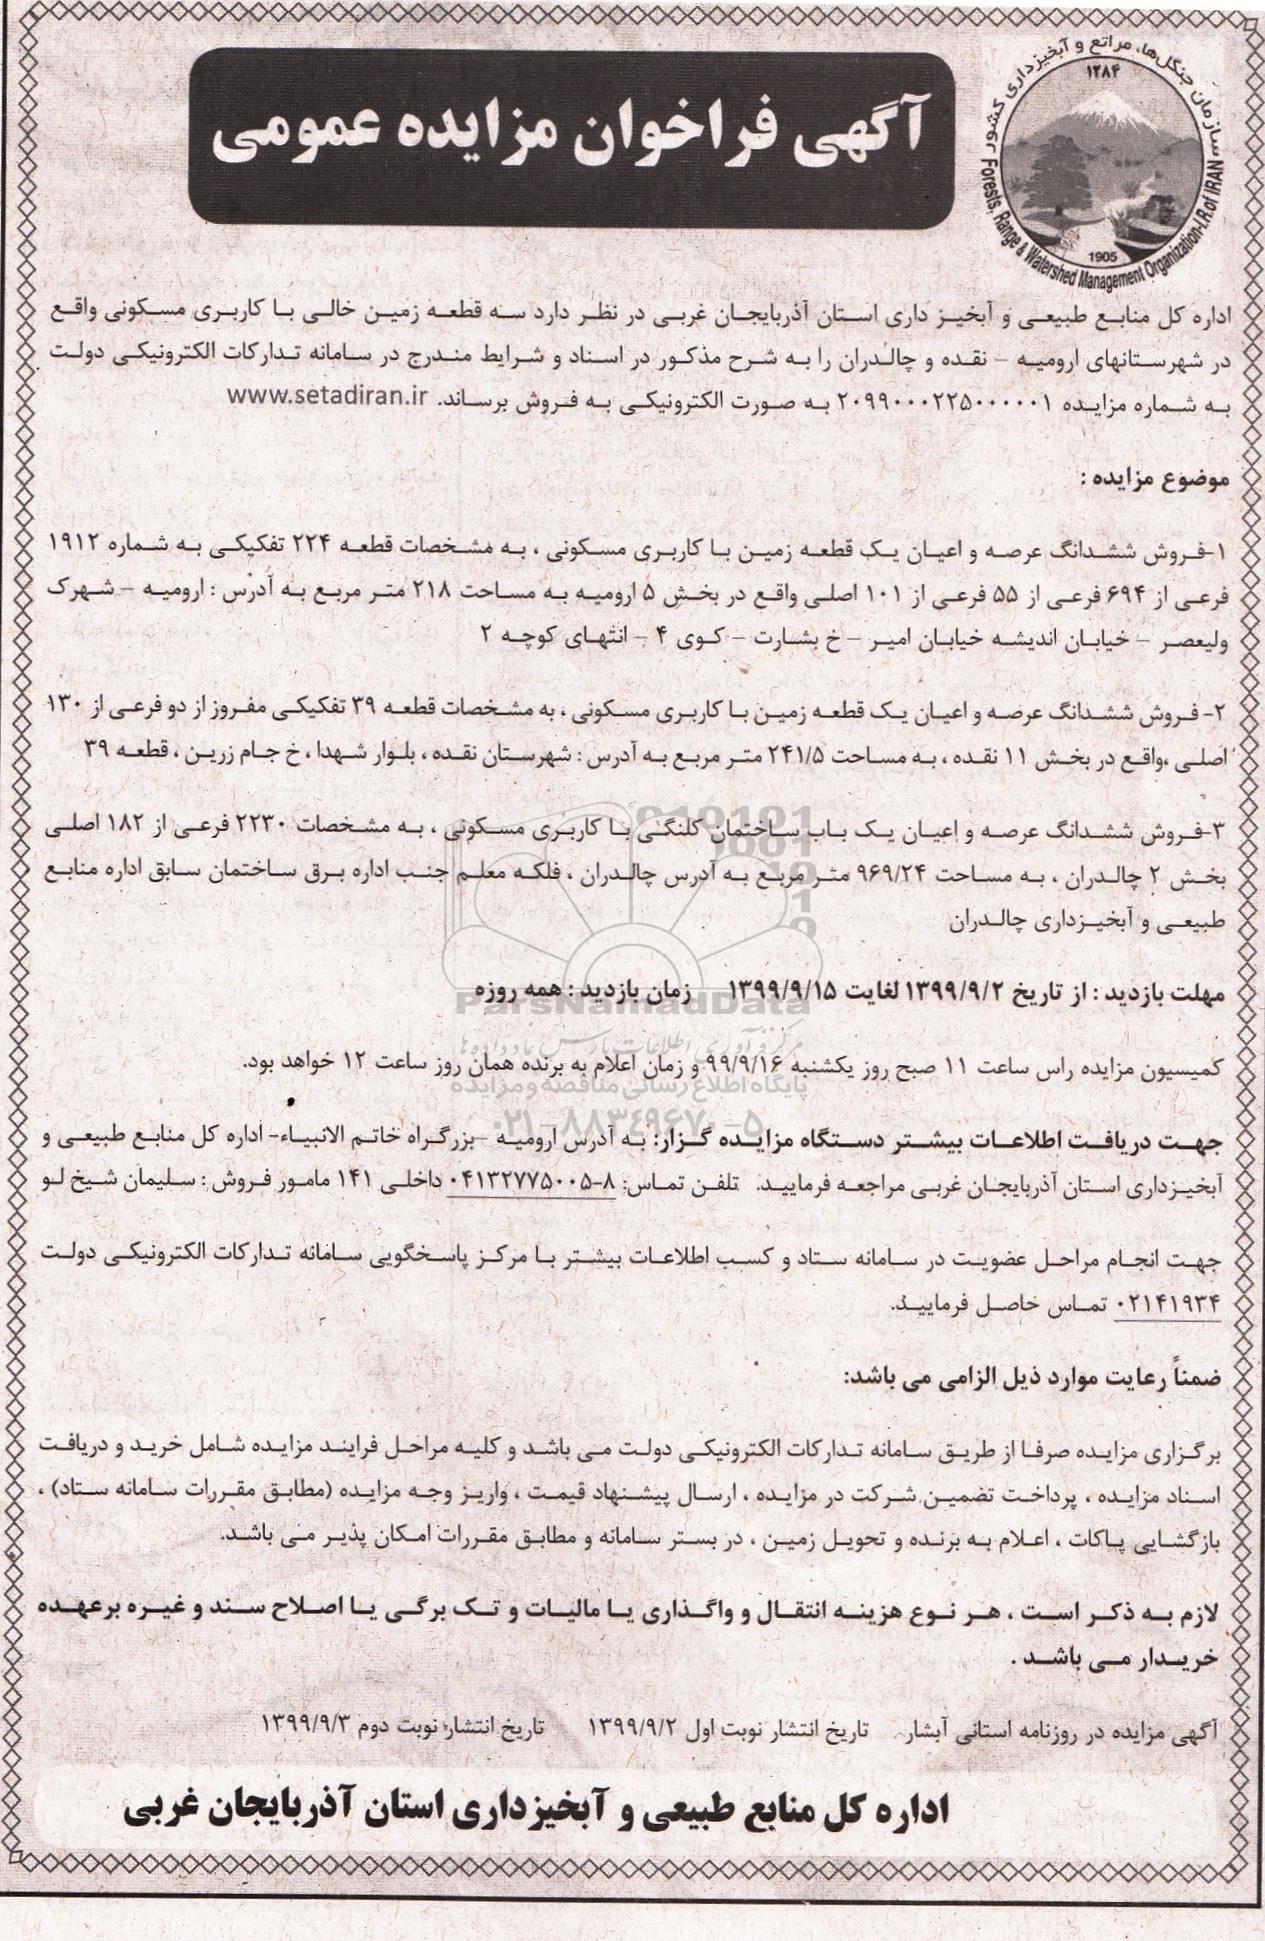 سازمان جنگل‌ها، مراتع و آبخیزداری کشور
۱۲۸۴
1905
Forests, Range & Watershed Management Organization-I.R.of IRAN
آگهی فراخوان مزایده عمومی
اداره کل منابع طبیعی و آبخیز داری استان آذربایجان غربی در نظر دارد سه قطعه زمین خالی با کاربری مسکونی واقع
در شهرستانهای ارومیه – نقده و چالدران را به شرح مذکور در اسناد و شرایط مندرج در سامانه تدارکات الکترونیکی دولت
به شماره مزایده ۲۰۹۹۰۰۰۲۲۵۰۰۰۰۰۱ به صورت الکترونیکی به فروش برساند. www.setadiran.ir
موضوع مزایده :
۱-فروش ششدانگ عرصه و اعیان یک قطعه زمین با کاربری مسکونی ، به مشخصات قطعه ۲۲۴ تفکیکی به شماره ۱۹۱۲
فرعی از ۶۹۴ فرعی از ۵۵ فرعی از ۱۰۱ اصلی واقع در بخش ۵ ارومیه به مساحت ۲۱۸ متر مربع به آدرس : ارومیه – شهرک
ولیعصر – خیابان اندیشه خیابان امیر – خ بشارت – کوی ۴ – انتهای کوچه ۲
۲- فروش ششدانگ عرصه و اعیان یک قطعه زمین با کاربری مسکونی ، به مشخصات قطعه ۳۹ تفکیکی مفروز از دو فرعی از ۱۳۰
اصلی ،واقع در بخش ۱۱ نقده ، به مساحت ۲۴۱/۵ متر مربع به آدرس : شهرستان نقده ، بلوار شهدا ، خ جام زرین ، قطعه ۳۹
۳-فروش ششدانگ عرصه و اعیان یک باب ساختمان کلنگی با کاربری مسکونی ، به مشخصات ۲۲۳۰ فرعی از ۱۸۲ اصلی
بخش ۲ چالدران ، به مساحت ۹۶۹/۲۴ متر مربع به آدرس چالدران ، فلکه معلم جنب اداره برق ساختمان سابق اداره منابع
طبیعی و آبخیزداری چالدران
مهلت بازدید : از تاریخ ۱۳۹۹/۹/۲ لغایت ۱۳۹۹/۹/۱۵ زمان بازدید : همه روزه
ParsNamadData
مرکز فرآوری اطلاعات پارس نماد داده ها
کمیسیون مزایده راس ساعت ۱۱ صبح روز یکشنبه ۹۹/۹/۱۶ و زمان اعلام به برنده همان روز ساعت ۱۲ خواهد بود.
پایگاه اطلاع رسانی مناقصه و مزایده
۰۲۱-۸۸۳۴۹۶۷۰-۵
جهت دریافت اطلاعات بیشتر دستگاه مزایده گزار: به آدرس ارومیه –بزرگراه خاتم الانبیاء– اداره کل منابع طبیعی و
آبخیزداری استان آذربایجان غربی مراجعه فرمایید. تلفن تماس: ۸-۰۴۱۳۲۷۷۵۰۰۵ داخلی ۱۴۱ مامور فروش : سلیمان شیخ لو
جهت انجام مراحل عضویت در سامانه ستاد و کسب اطلاعات بیشتر با مرکز پاسخگویی سامانه تدارکات الکترونیکی دولت
۰۲۱۴۱۹۳۴ تماس حاصل فرمایید.
ضمناً رعایت موارد ذیل الزامی می باشد:
برگزاری مزایده صرفا از طریق سامانه تدارکات الکترونیکی دولت می باشد و کلیه مراحل فرایند مزایده شامل خرید و دریافت
اسناد مزایده ، پرداخت تضمین شرکت در مزایده ، ارسال پیشنهاد قیمت ، واریز وجه مزایده (مطابق مقررات سامانه ستاد) ،
بازگشایی پاکات ، اعلام به برنده و تحویل زمین ، در بستر سامانه و مطابق مقررات امکان پذیر می باشد.
لازم به ذکر است ، هر نوع هزینه انتقال و واگذاری یا مالیات و تک برگی یا اصلاح سند و غیره برعهده
خریدار می باشد .
آگهی مزایده در روزنامه استانی آبشار تاریخ انتشار نوبت اول ۱۳۹۹/۹/۲ تاریخ انتشار نوبت دوم ۱۳۹۹/۹/۳
اداره کل منابع طبیعی و آبخیزداری استان آذربایجان غربی